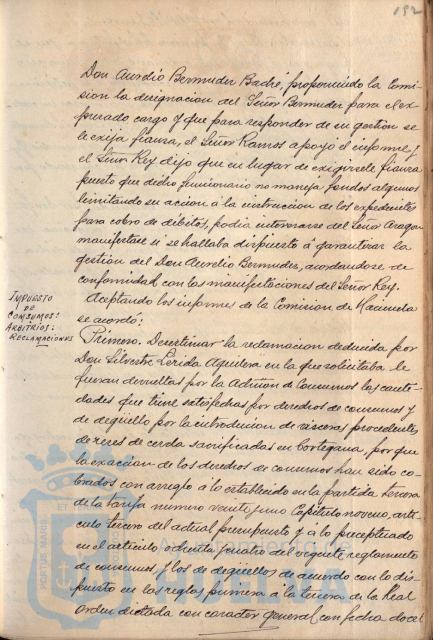 192
Don Aurelio Bermudez Badré, proponiendo la Comi-
sion la designacion del Señor Bermudez para el ex-
presado cargo y que para responder de su gestión se
le exija fianza, el Señor Ramos apoyó el informe y
el Señor Rey dijo que en lugar de exigirsele fianza
puesto que dicho funcionario no maneja fondos algunos
limitando su acción á la instruccion de los expedientes
para cobro de débitos, podia interesarse del Señor Aragon
manifestase si se hallaba dispuesto á garantizar la
gestion del Don Aurelio Bermudez, acordandose de
conformidad con las manifestaciones del Señor Rey.
Aceptando los informes de la Comision de Hacienda
se acordó:
IMPUESTO
DE
CONSUMOS:
ARBITRIOS:
RECLAMACIONES
Primero. Desestimar la reclamacion deducida por
Don Silvestre Lérida Aguilera en la que solicitaba le
fueran devueltas por la Admon de Consumos las canti-
dades que tiene satisfechas por derechos de consumos y
de degüello por la introduccion de visceras procedentes
de reses de cerda sacrificadas en Cortegana, por que
la exaccion de los derechos de consumos han sido co-
brados con arreglo á lo establecido en la partida tercera
de la tarifa numero veinte y uno Capitulo noveno, arti-
culo tercero del actual presupuesto y á lo preceptuado
en el articulo ochenta y cuatro del vigente reglamento
de consumos, y los de degüello de acuerdo con lo dis-
puesto en las reglas primera á la tercera de la Real
Orden dictada con caracter general con fecha doce
PORTUS MARIS ET
HUELVA